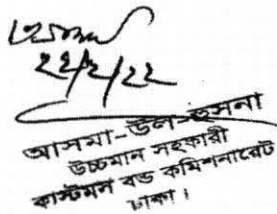 ২২/২/২২
আসমা-উল-হুসনা
উচ্চমান সহকারী
কাস্টমস বন্ড কমিশনারেট
ঢাকা।